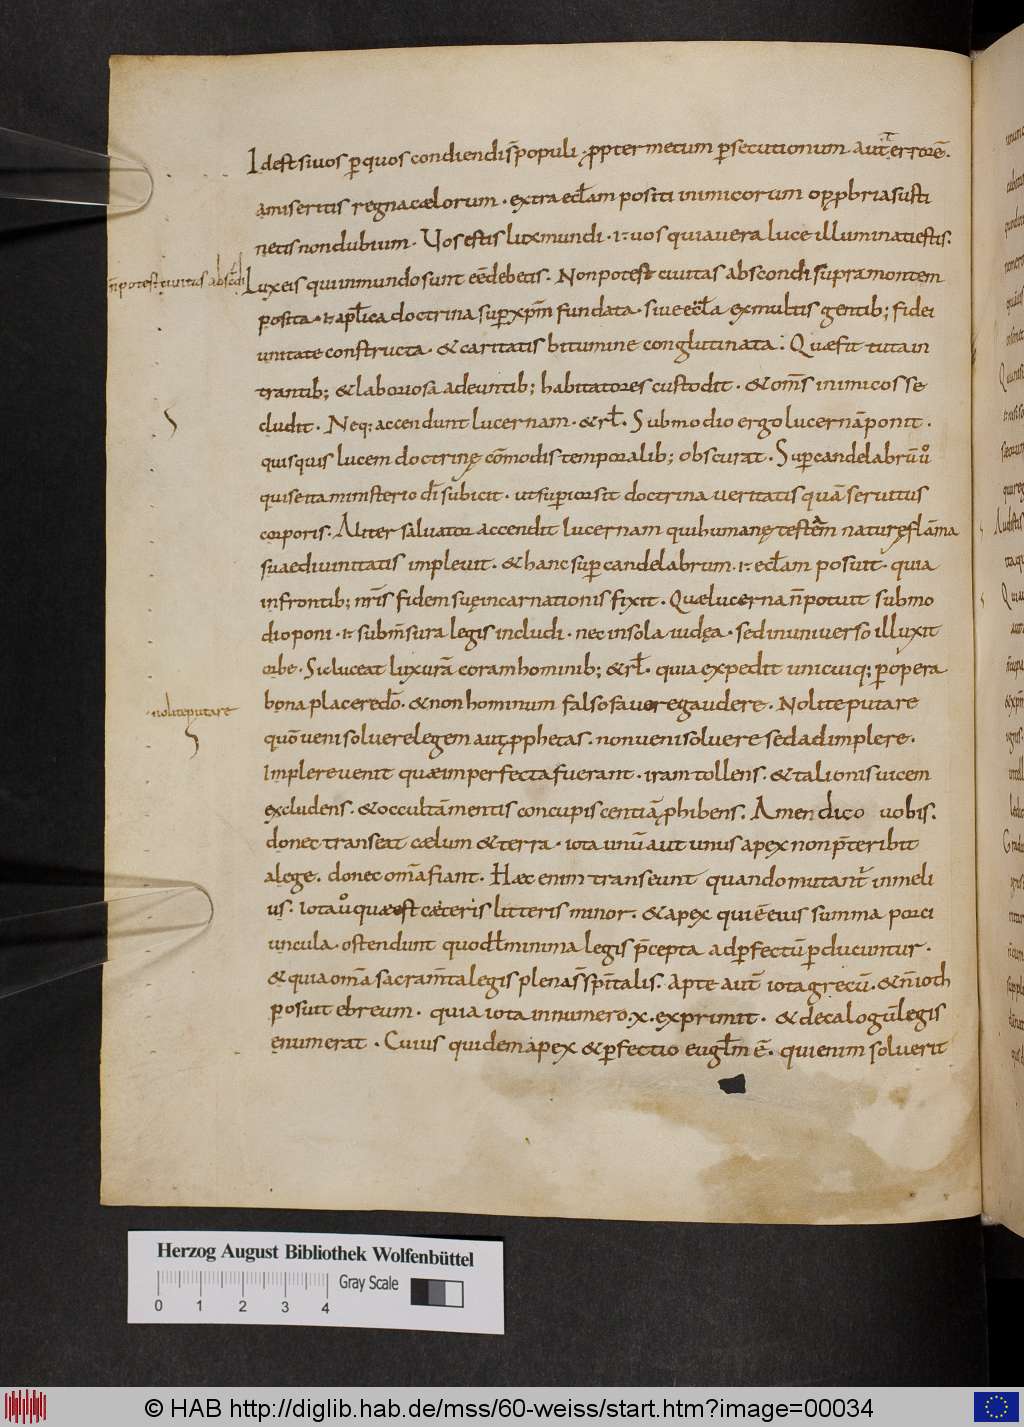 Idest si uos ꝑ quos condiendi s̄ populi · ꝓpter metum ꝑsecutionum · aut terrorē·
amiseritis regna cælorum · extra eccl̄am positi inimicorum opꝓbria susti
netis non dubium · Uos estis lux mundi · i· uos qui a uera luce illuminati estis·
n̄ potest ciuitas abscōdi
Lux eis qui in mundo sunt eē debetis· Non potest ciuitas abscondi supra montem
posita · i· apl̄ica doctrina suꝑ xp̄m fundata · siue eccl̄a ex multis gentib; fidei
unitate constructa · & caritatis bitumine conglutinata· Quæ fit tuta in
trantib; & laboriosa adeuntib; habitatores custodit · & om̄s inimicos se
cludit · Neq; accendunt lucernam · & rł· Sub modio ergo lucernā ponit ·
quisquis lucem doctrinę cōmodis temporalib; obscurat · Suꝑ candelabrū ů
qui se ita ministerio dī subicit · ut suꝑior sit doctrina ueritatis quā seruitus
corporis· Aliter saluator accendit lucernam qui humanę testam naturę flāma
suae diuinitatis impleuit · & hanc suꝑ candelabrum · i· eccl̄am posuit · quia
in frontib; nr̄is fidem suę incarnationis fixit · Quæ lucerna n̄ potuit sub mo
dio poni · i· sub m̄sura legis includi · nec in sola iudęa · sed in uniuerso illuxit
orbe · Sic luceat lux urā coram hominib; & rł· quia expedit unicuiq; ꝑ opera
bona placere dō· & non hominum falso fauore gaudere · Nolite putare
nolite putare
quō ueni soluere legem aut ꝓphetas· non ueni soluere sed adimplere·
Implere uenit quæ imperfecta fuerant · iram tollens· & talionis uicem
excludens· & occultā mentis concupiscentiā ꝓhibens· Amen dico uobis·
donec transeat cælum & terra · iota unū aut unus apex non p̄teribit
a lege· donec omā fiant · Hæc enim transeunt quando mutant̄ in meli
us· Iota ů quæ est cæteris litteris minor· & apex qui ē eius summa porci
uncula · ostendunt quod &̄ minima legis p̄cepta ad ꝑfectū ꝑducuntur·
& quia omā sacram̄ta legis plena s̄ sp̄italis· Apte aut̄ iota grecū· & n̄ ioth
posuit ebreum · quia iota in numero ·x· exprimit · & decalogū legis
enumerat · Cuius quidem apex & ꝑfectio eugl̄m ē· qui enim soluerit
Herzog August Bibliothek Wolfenbüttel
Gray Scale
0 1 2 3 4
© HAB http://diglib.hab.de/mss/60-weiss/start.htm?image=00034